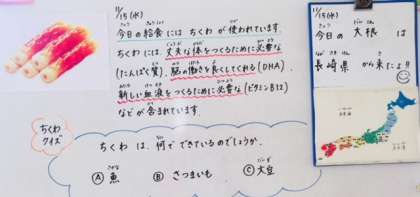 11/15(水)
今日の給食にはちくわが使われています。
ちくわには、丈夫な体をつくるために必要な
(たんぱく質)、脳の働きを良くしてくれる(DHA)
新しい血液をつくるために必要な(ビタミンB12)
などが含まれています。
ちくわ
クイズ
ちくわは、何でできているのでしょうか。
Ⓐ魚
Ⓑさつまいも
Ⓒ大豆
11/15(水)
今日の大根は
長崎県から来たよ!!